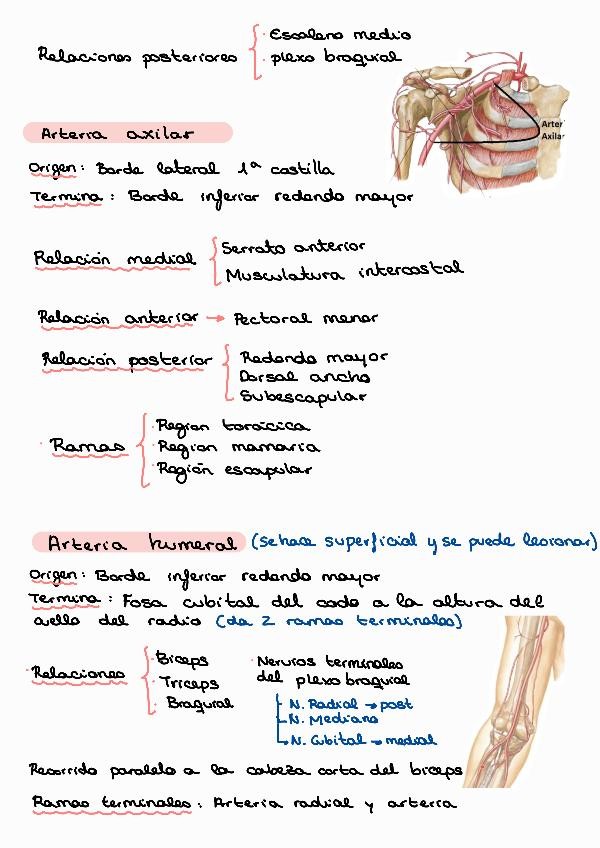 Relaciones posteriores
· Escaleno medio
· plexo braquial
Arteria
Axilar
Arteria axilar
Origen: Borde lateral 1ª costilla
Termina: Borde inferior redondo mayor
Relación medial
Serrato anterior
Musculatura intercostal
Relación anterior → Pectoral menor
Relación posterior
Redondo mayor
Dorsal ancho
Subescapular
· Ramas
· Region torácica
· Region mamaria
· Región escapular
Arteria humeral (se hace superficial y se puede lesionar)
Origen: Borde inferior redondo mayor
Termina: Fosa cubital del codo a la altura del
cuello del radio (da 2 ramas terminales)
· Relaciones
· Biceps
· Triceps
· Braquial
· Nervios terminales
del plexo braquial
N. Radial → post
N. Mediano
N. Cubital → medial
Recorrido paralelo a la cabeza corta del biceps
Ramas terminales: Arteria radial y arteria